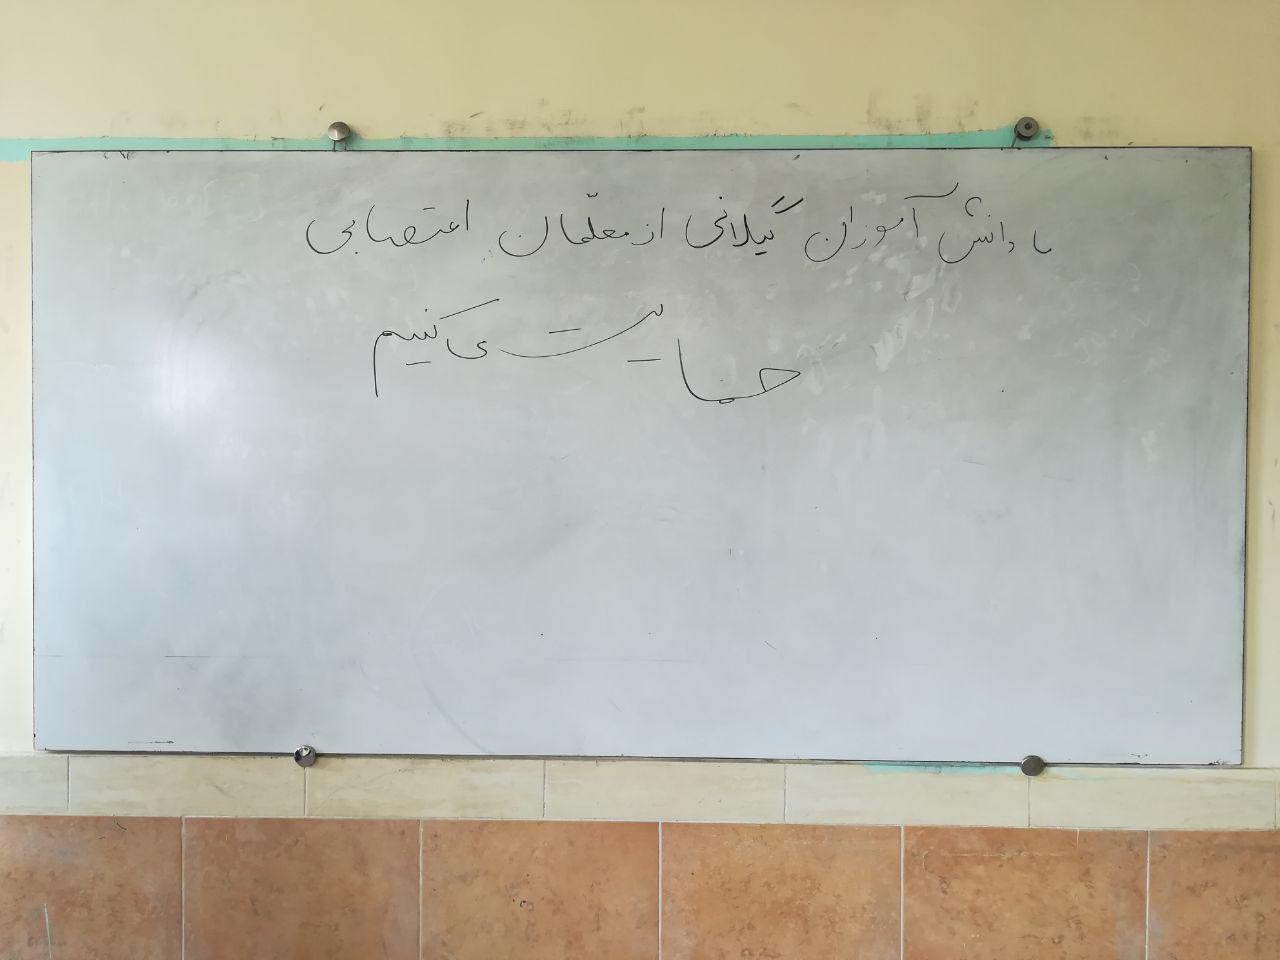 ما دانش آموزان گیلانی از معلّمان اعتصابی
حمایت می کنیم